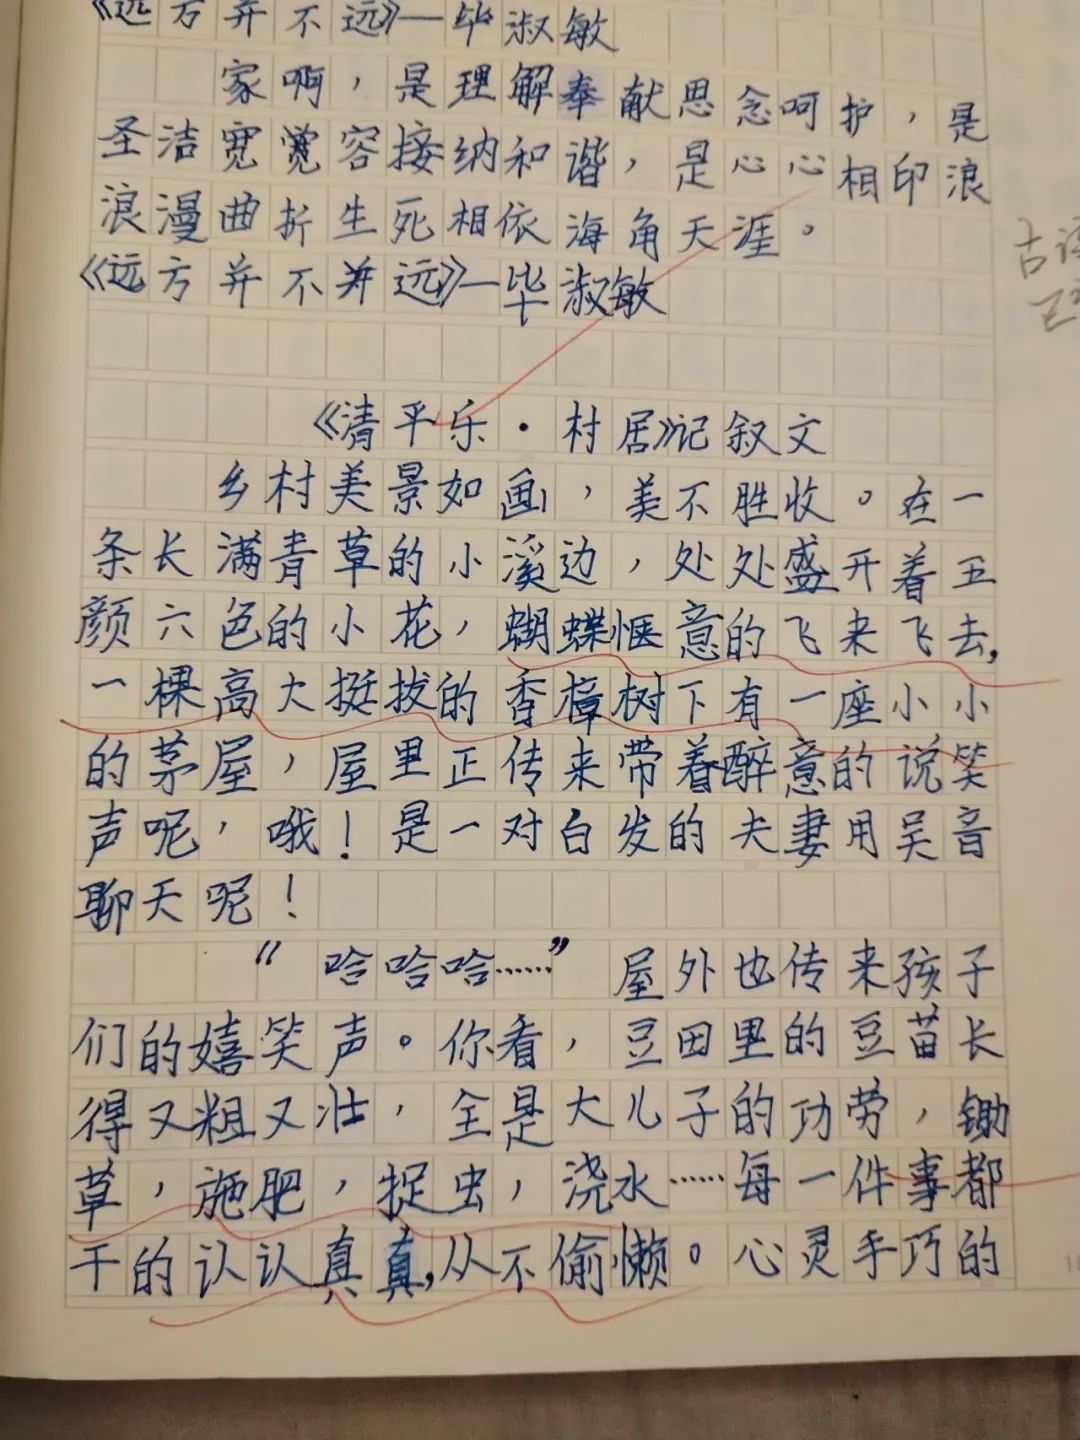 《远方并不远》—毕淑敏
家啊，是理解奉献思念呵护，是
圣洁宽容接纳和谐，是心心相印浪
浪漫曲折生死相依海角天涯。
《远方并不远》—毕淑敏
古诗
《清平乐·村居》记叙文
乡村美景如画，美不胜收。在一
条长满青草的小溪边，处处盛开着五
颜六色的小花，蝴蝶惬意的飞来飞去，
一棵高大挺拔的香樟树下有一座小小
的茅屋，屋里正传来带着醉意的说笑
声呢，哦！是一对白发的夫妻用吴音
聊天呢！
“哈哈哈……”屋外也传来孩子
们的嬉笑声。你看，豆田里的豆苗长
得又粗又壮，全是大儿子的功劳，锄
草，施肥，捉虫，浇水……每一件事都
干的认认真真，从不偷懒。心灵手巧的